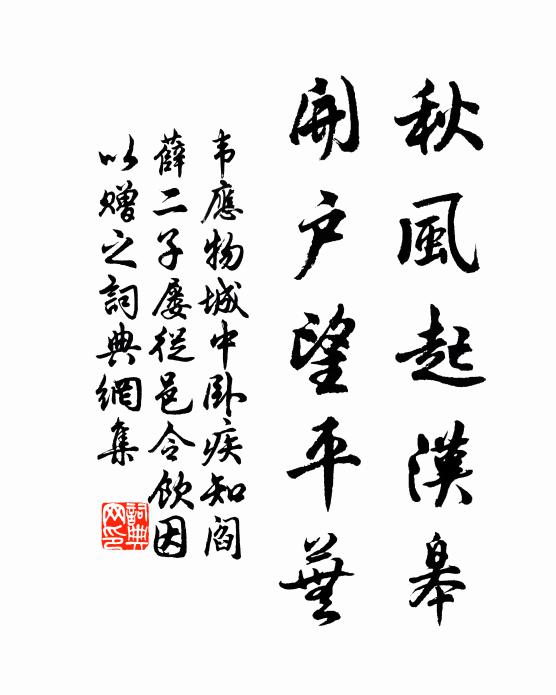 秋風起漢皋
開戶望平蕪
韦應物城中卧疾知阎
薛二子屡從邑令飲因
以赠之詞典網集
詞典
网印